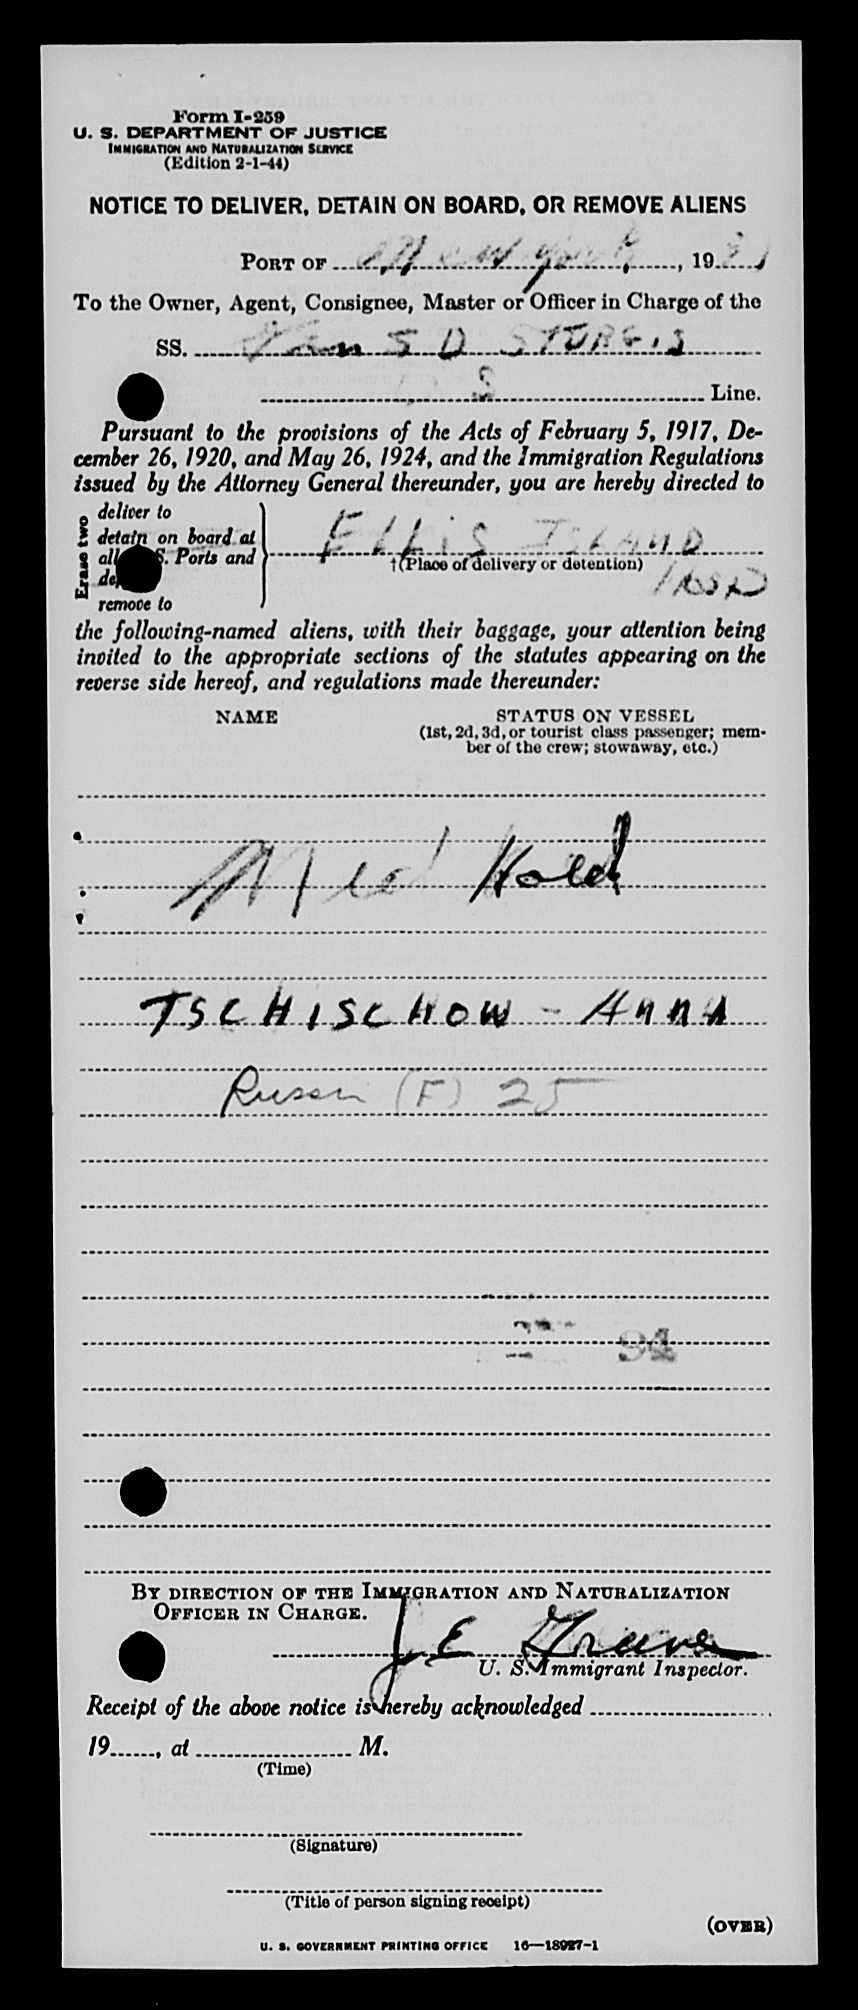 Form I-259
U. S. DEPARTMENT OF JUSTICE
IMMIGRATION AND NATURALIZATION SERVICE
(Edition 2-1-44)
NOTICE TO DELIVER, DETAIN ON BOARD, OR REMOVE ALIENS
PORT OF New York, 19
To the Owner, Agent, Consignee, Master or Officer in Charge of the
SS. S D STURGIS
Line.
Pursuant to the provisions of the Acts of February 5, 1917, De-
cember 26, 1920, and May 26, 1924, and the Immigration Regulations
issued by the Attorney General thereunder, you are hereby directed to
Erase two
deliver to
detain on board at
all S. Ports and
remove to
ELLIS ISLAND
†(Place of delivery or detention)
INSP
the following-named aliens, with their baggage, your attention being
invited to the appropriate sections of the statutes appearing on the
reverse side hereof, and regulations made thereunder:
NAME STATUS ON VESSEL
(1st, 2d, 3d, or tourist class passenger; mem-
ber of the crew; stowaway, etc.)
Med Hold
TSCHISCHOW - ANNA
Russn (F) 25
94
BY DIRECTION OF THE IMMIGRATION AND NATURALIZATION
OFFICER IN CHARGE.
J E
U. S. Immigrant Inspector.
Receipt of the above notice is hereby acknowledged
19......, at M.
(Time)
(Signature)
(Title of person signing receipt)
(OVER)
U. S. GOVERNMENT PRINTING OFFICE 16—18927-1